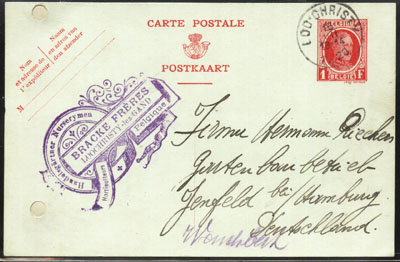 CARTE POSTALE
POSTKAART
Nom
et adresse de
l'expéditeur
Naam
en adres van
den afzender
M
LOO-CHRISTY
1 F
BELGIE
Handelsgärtner Nurserymen
BRACKE FRÈRES
LOOCHRISTY lez GAND
Belgique
Horticulteurs
Firma Hermann
Gartenbaubetrieb
Jenfeld bei Hamburg.
Deutschland.
Wandsbek